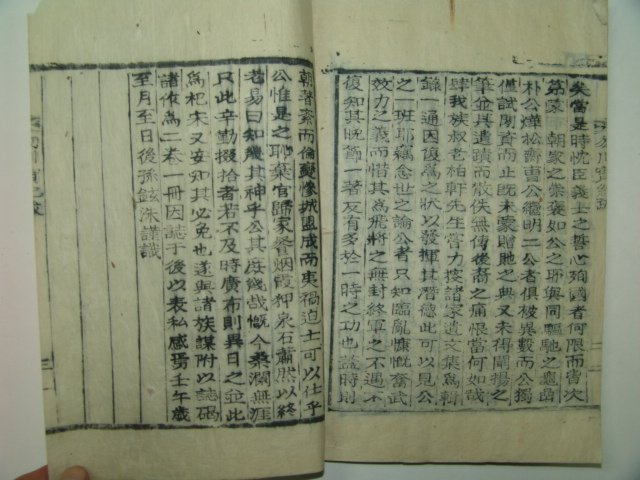 矣當是時忱臣義士之誓心殉國者何限而皆次
第蒙
朝家之崇褒如公之耶與同驅馳之龜菴
朴公燁松齋曺公繼明二公者俱被異數而公獨
僅試閫寄而止旣未蒙贈貤之典又未得闡揚之
筆並其遺蹟而散佚無傳後裔之痛恨當何如哉
肆我族叔老柏軒先生嘗力搜諸家遺文集爲輯
錄一通因復爲之狀以發揮其潛德此可以見公
之一班耶竊念世之論公者只知臨亂慷慨奮武
效力之義而惜其爲飛將之無封終軍之不遇不
復知其晩節一著反有多於一時之功也蓋時則
朝著紊而倫變慘城盟成而夷禍迫士可以仕乎
公惟是之耻棄官歸家餐烟霞狎泉石蕭然以終
老易曰知幾其神乎公其庶幾哉慨今桑瀾無涯
只此辛勤掇拾者若不及時廣布則異日之並此
爲杞宋又安知其必免也遂與諸族謀附以誌碣
諸作爲二卷一冊因誌于後以表私感焉壬午歲
至月至日後孫鉉洙謹識